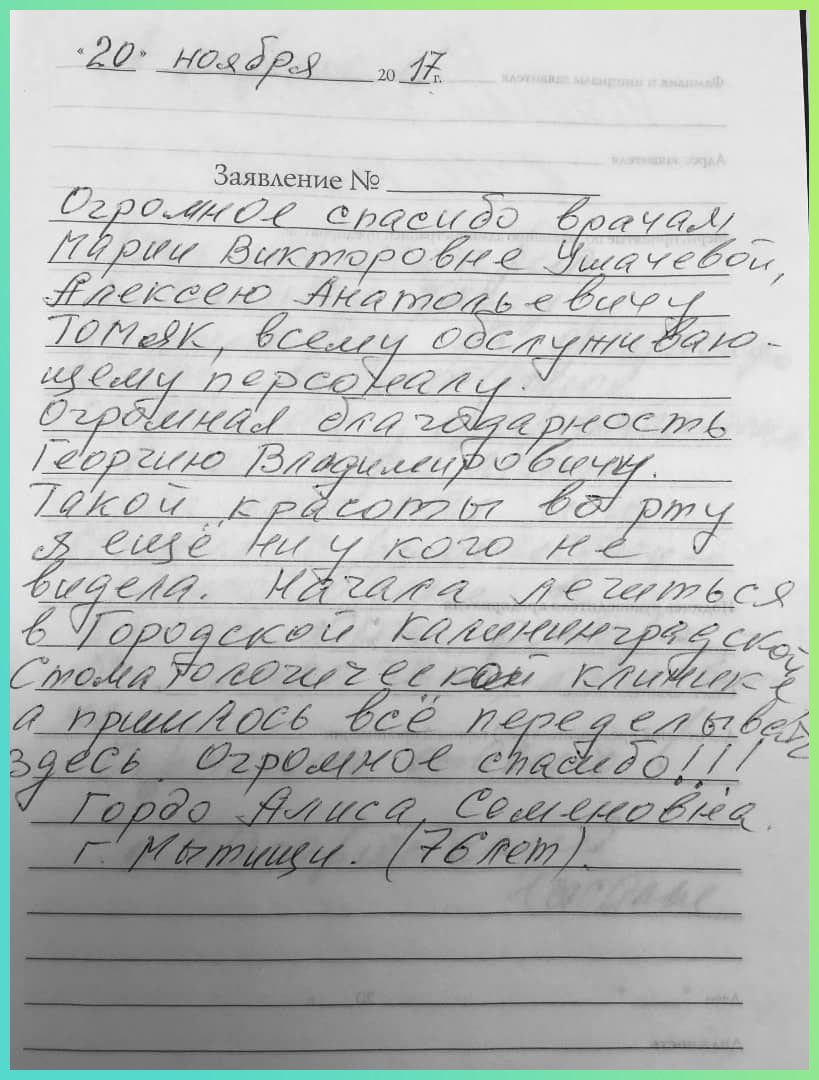 «20» ноября 2017г.
Заявление №
Огромное спасибо врачам
Марии Викторовне Ушачевой,
Алексею Анатольевичу
Томяк, всему обслуживаю-
щему персоналу.
Огромная благодарность
Георгию Владимировичу.
Такой красоты во рту
я ещё ни у кого не
видела. Начала лечиться
в Городской Калининградской
Стоматологической клинике
а пришлось всё переделывать
здесь. Огромное спасибо!!!
Гордо Алиса Семеновна.
г. Мытищи. (76 лет).